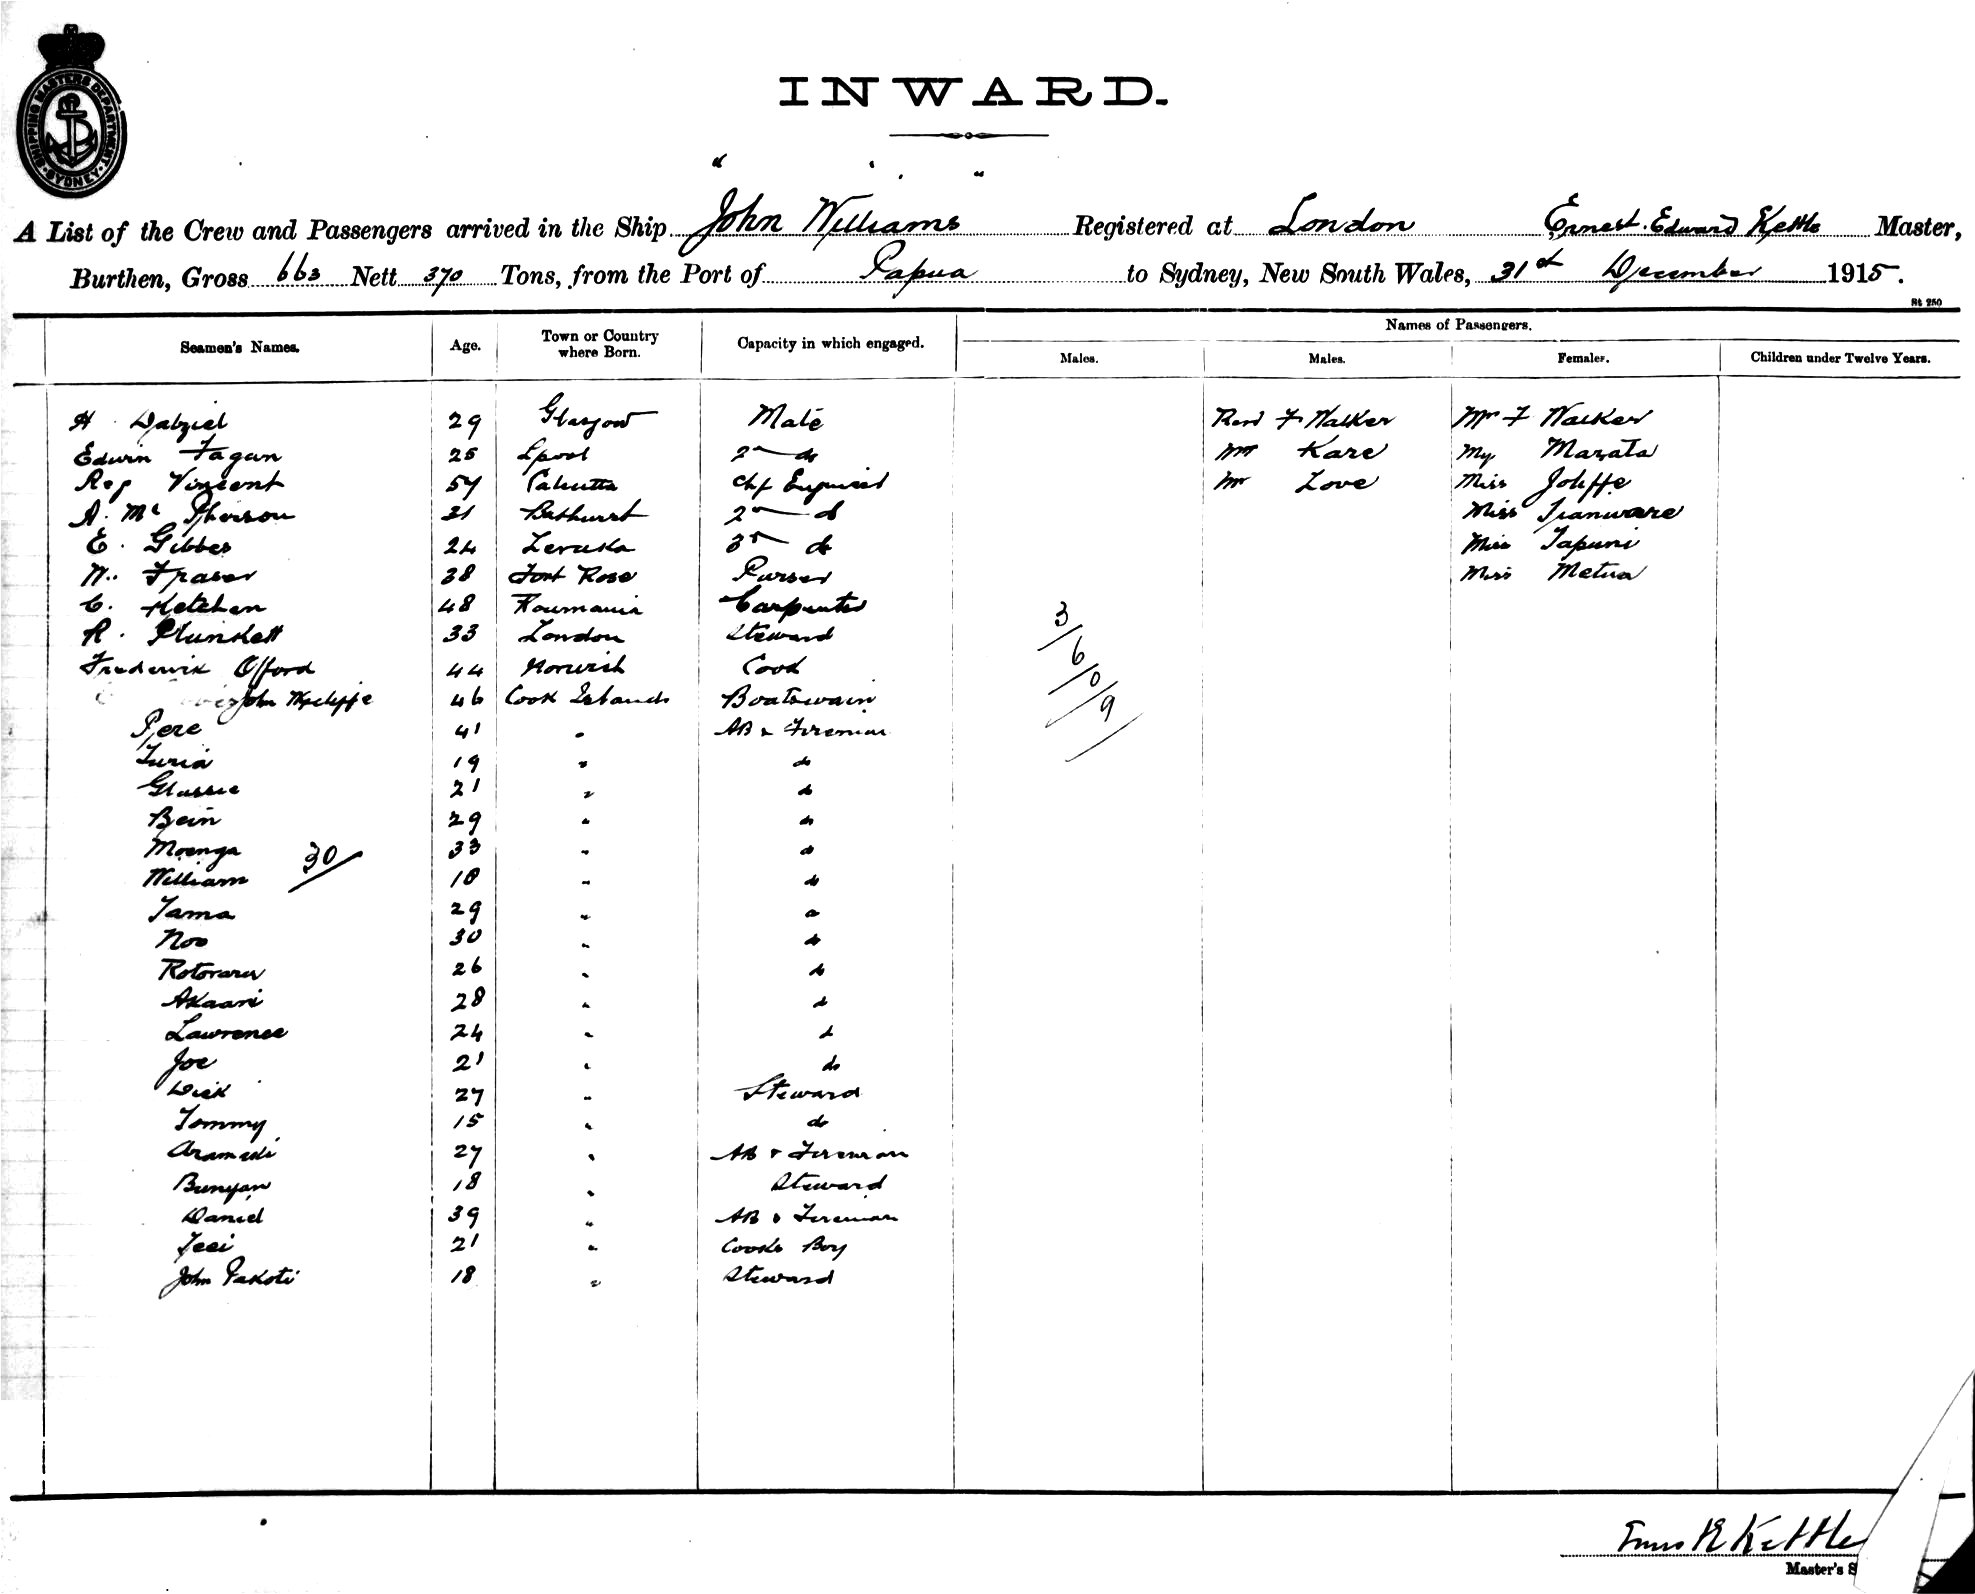 SHIPPING MASTERS DEPARTMENT
SYDNEY
INWARD.
A List of the Crew and Passengers arrived in the Ship "John Williams" Registered at London Ernest Edward Kettle Master,
Burthen, Gross 663 Nett 370 Tons, from the Port of Papua to Sydney, New South Wales, 31st December 1915.
St 250
Seamen's Names. Age. Town or Country where Born. Capacity in which engaged. Names of Passengers.
Males. Males. Females. Children under Twelve Years.
H Dalziel 29 Glasgow Mate Revd F Walker Mrs F Walker
Edwin Fagan 25 Lpool 2nd do Mr Kare Marata
Reg Vincent 57 Calcutta Chf Engineer Mr Love Miss Joliffe
A. Mc Pherson 31 Bathurst 2nd do Miss Iranware
E. Gibbes 24 Levuka 3rd do Miss Tapuni
W. Fraser 38 Font Rose Purser Miss Metua
C. Ketchen 48 Roumania Carpenter
R. Plunkett 33 London Steward
Frederick Offord 44 Norwich Cook
John Wycliffe 46 Cook Islands Boatswain
3/6/0/9/
Pere 41 " AB & Fireman
Turia 19 " do
Glassie 21 " do
Bein 29 " do
Moenga 33 " do
30/
William 18 " do
Tama 29 " do
Noo 30 " do
Rotorarer 26 " do
Akaari 28 " do
Lawrence 24 " do
Joe 21 " do
Dick 27 " Steward
Tommy 15 " do
27 " AB & Fireman
Bunyan 18 " Steward
Daniel 39 " AB & Fireman
Teei 21 " Cooks Boy
John Pakoti 18 " Steward
Ernest E Kettle
Master's S